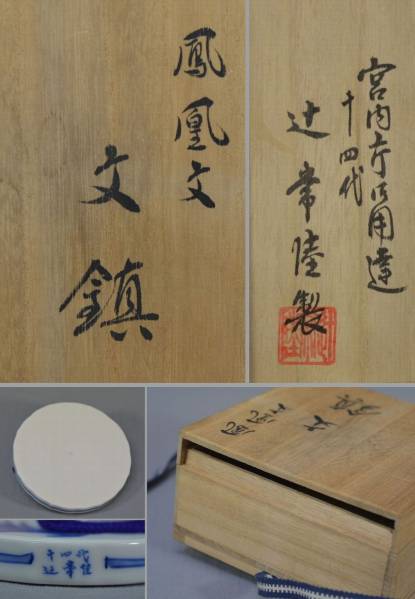 鳳凰文
文鎮
宮内庁御用達
十四代
辻常陸製
十四代
辻常陸